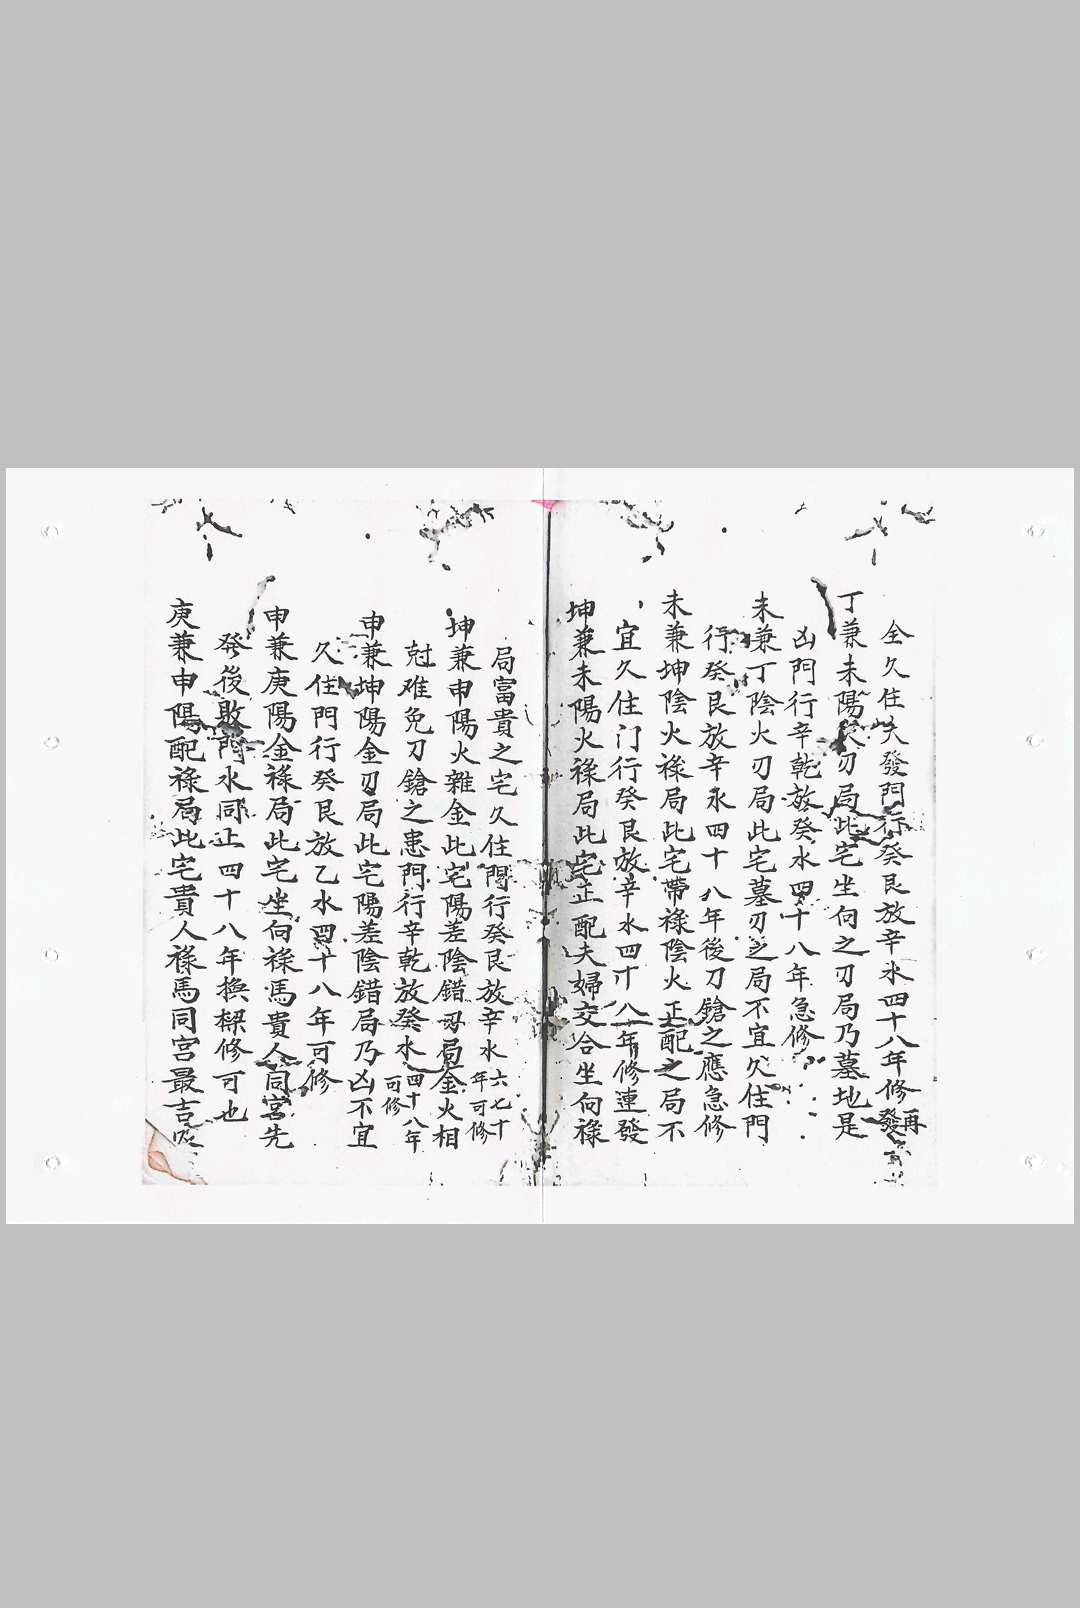 全久住大發門行癸艮放辛水四十八年修再發
丁兼未陽火刃局此宅坐向之刃局乃墓地是
凶門行辛乾放癸水四十八年急修
未兼丁陰火刃局此宅墓刃之局不宜久住門
行癸艮放辛水四十八年後刀鎗之應急修
未兼坤陰火祿局此宅帶祿陰火正配之局不
宜久住门行癸艮放辛水四十八年修連發
坤兼未陽火祿局此宅正配夫婦交合坐向祿
局富貴之宅久住門行癸艮放辛水六七十年可修
坤兼申陽火雜金此宅陽差陰錯刃局金火相
尅难免刀鎗之患門行辛乾放癸水四十八年可修
申兼坤陽金刃局此宅陽差陰錯局乃凶不宜
久住門行癸艮放乙水四十八年可修
申兼庚陽金祿局此宅坐向祿馬貴人同宮先
發後敗門水同止四十八年換樑修可也
庚兼申陽配祿局此宅貴人祿馬同宮最吉